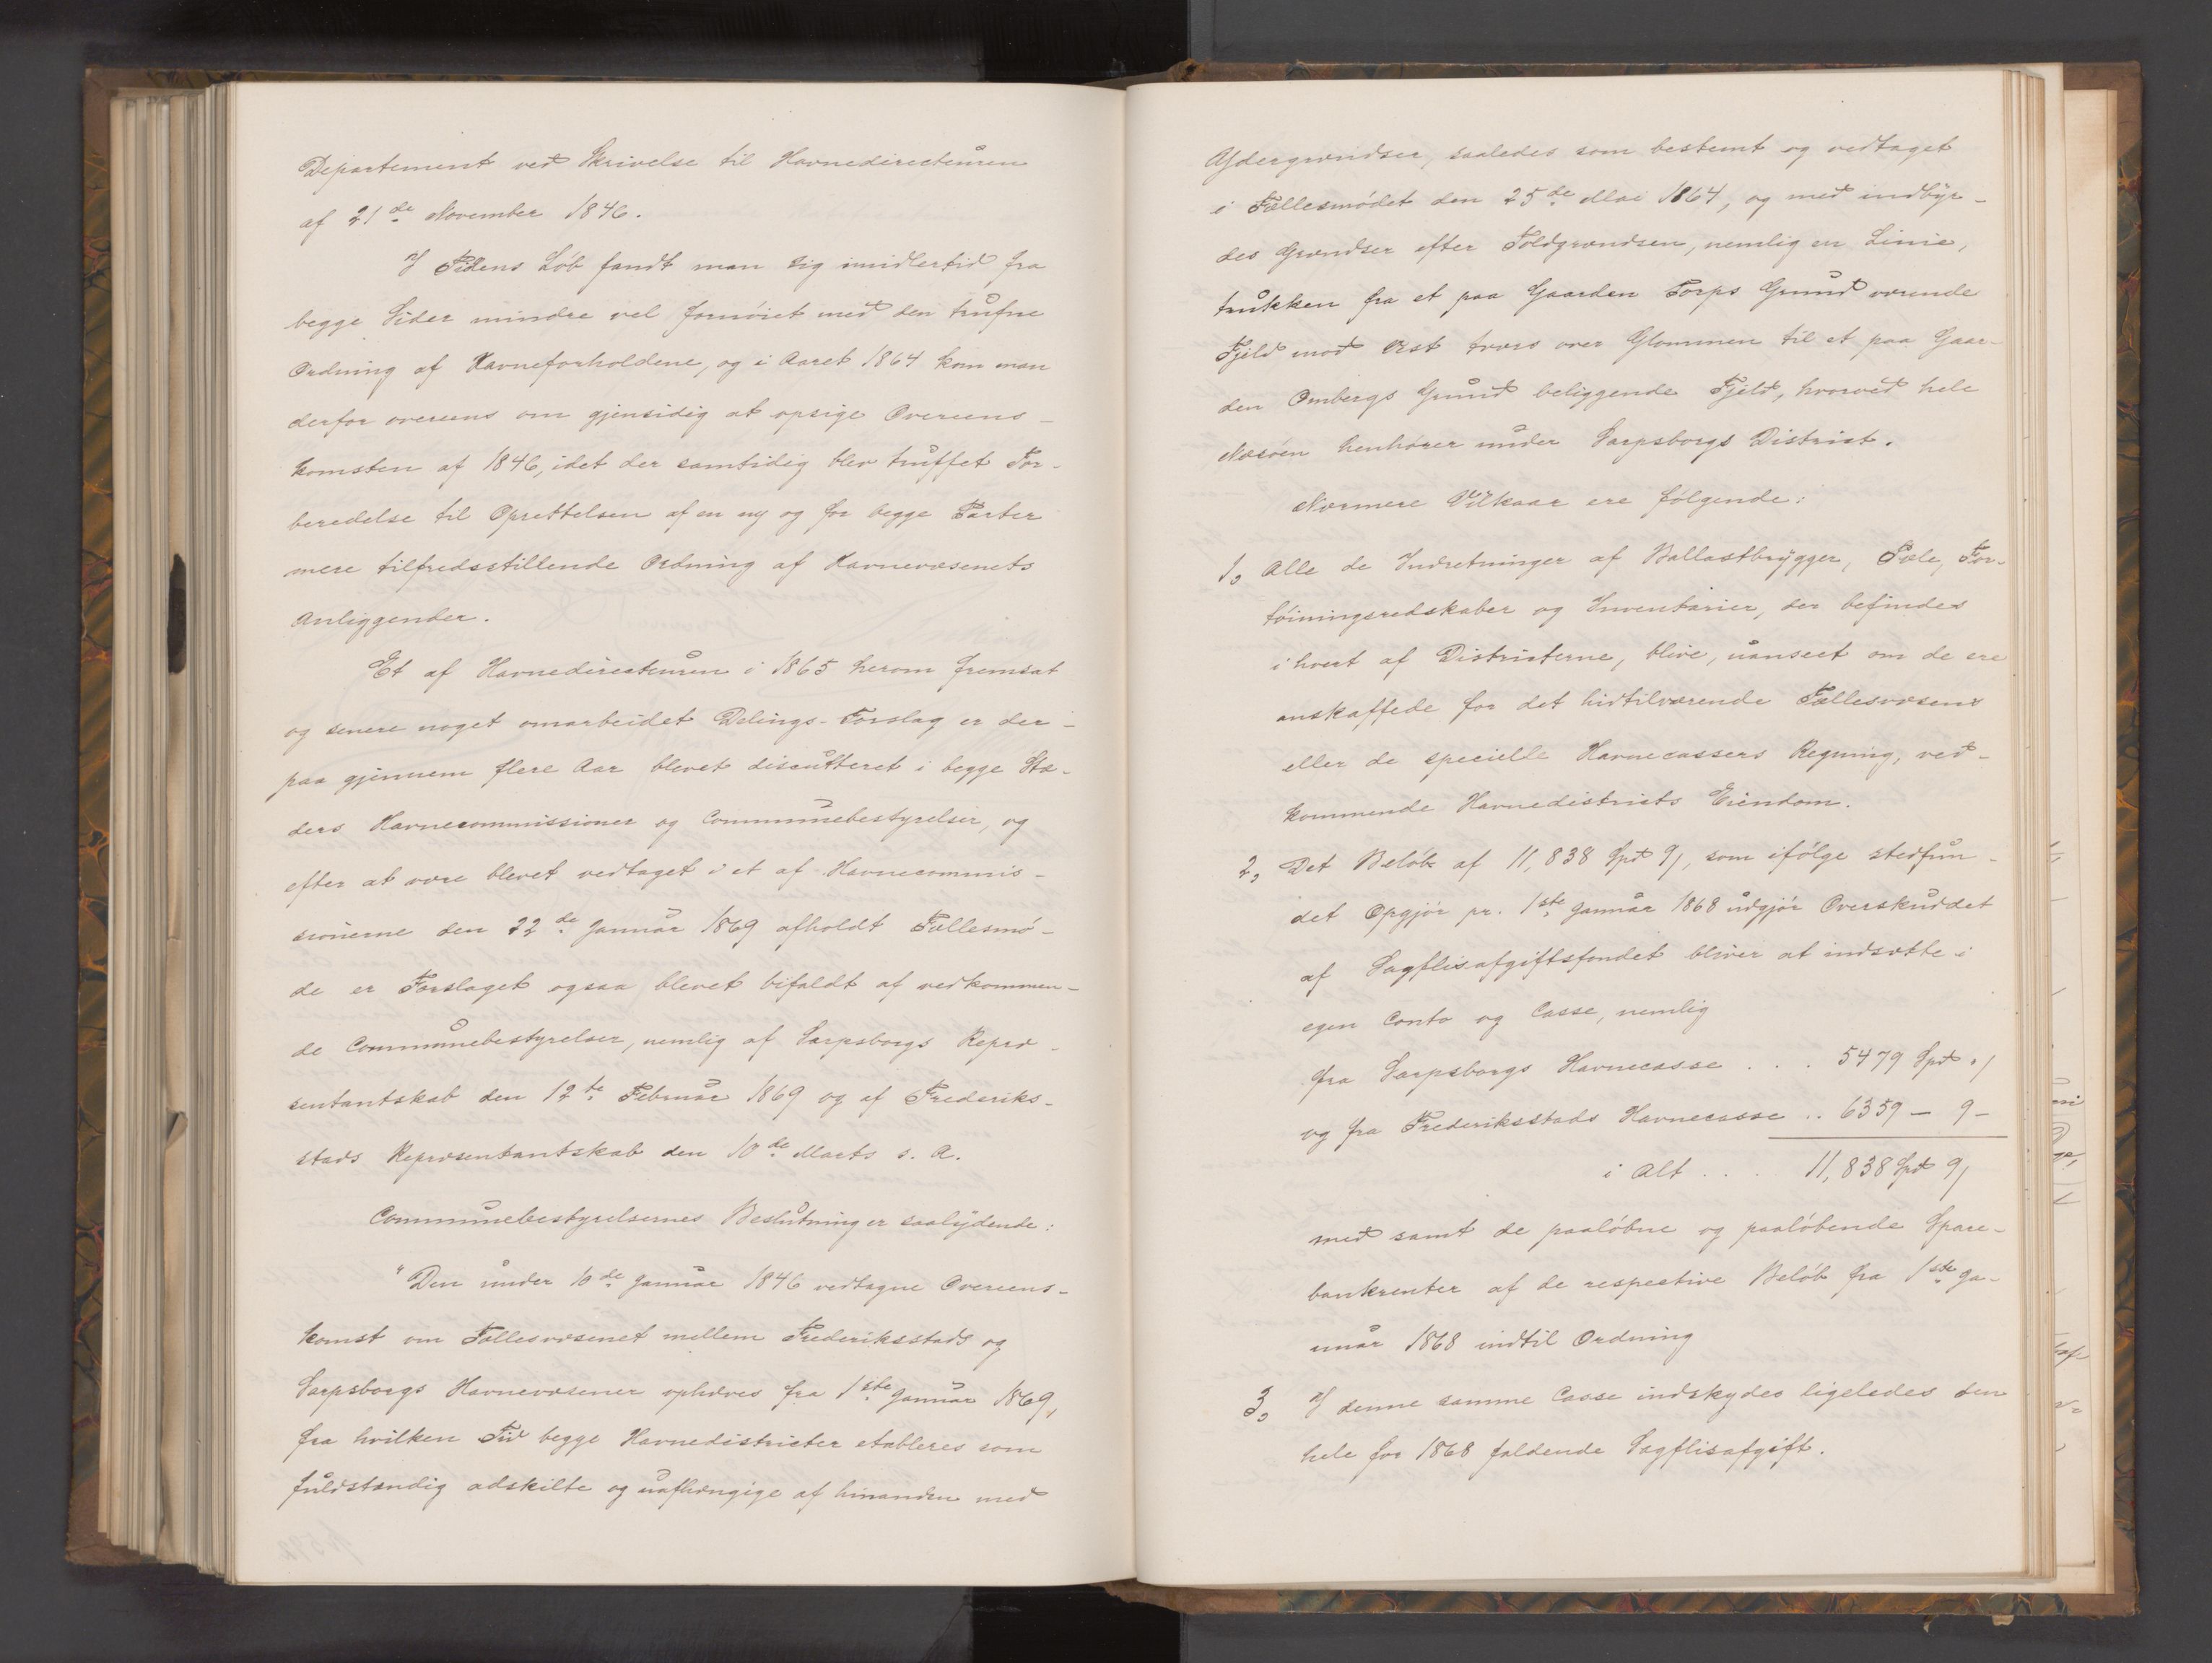 Departement ved Skrivelse til Havnedirecteuren
af 21de November 1846.
I Tidens Løb fandt man sig imidlertid fra
begge Sider mindre vel fornøiet med den trufne
Ordning af Havneforholdene, og i Aaret 1864 kom man
derfor overeens om gjensidig at opsige Overeens-
komsten af 1846, idet der samtidig blev truffet For-
beredelse til Oprettelsen af en ny og for begge Parter
mere tilfredsstillende Ordning af Havnevæsenets
Anliggender.
Et af Havnedirecteuren i 1865 herom fremsat
og senere noget omarbeidet Delings-Forslag er der-
paa gjennem flere Aar blevet discutteret i begge Stæ-
ders Havnecommissioner og Communebestyrelser, og
efter at være blevet vedtaget i et af Havnecommis-
sionerne den 22de Januar 1869 afholdt Fællesmø-
de er Forslaget ogsaa blevet bifaldt af vedkommen-
de Communebestyrelser, nemlig af Sarpsborgs Repræ-
sentantskab den 12te Februar 1869 og af Frederiks-
stads Repræsentantskab den 10de Marts s. A.
Communebestyrelsernes Beslutning er saalydende:
"Den under 10de Januar 1846 vedtagne Overeens-
komst om Fællesvæsenet mellem Frederiksstads og
Sarpsborgs Havnevæsener ophæves fra 1ste Januar 1869,
fra hvilken Tid begge Havnedistricter etableres som
fuldstændig adskilte og uafhængige af hinanden med
Ydergrændser, saaledes som bestemt og vedtaget
i Fællesmødet den 25de Mai 1864, og med indbyr-
des Grændser efter Toldgrændsen, nemlig en Linie,
trukken fra et paa Gaarden Torps Grund værende
Fjeld mod Øst tvers over Glommen til et paa Gaar-
den Ombergs Grund beliggende Fjeld, hvorved hele
Næsøen henhører under Sarpsborgs District.
Nærmere Vilkaar ere følgende:
1, Alle de Indretninger af Ballastbrygger, Pæle, For-
tøiningsredskaber og Inventarier, der befindes
i hvert af Districterne, blive, uanseet om de ere
anskaffede for det hidtilværende Fællesvæsens
eller de specielle Havnecassers Regning, ved-
kommende Havnedistricts Eiendom.
2, Det Beløb af 11,838 Spd 9/, som ifølge stedfun-
det Opgjør pr. 1ste Januar 1868 udgjør Overskuddet
af Sagflisafgiftsfondet bliver at indsætte i
egen Conto og Casse, nemlig
fra Sarpsborgs Havnecasse . . . 5479 Spd "/
og fra Frederiksstads Havnecasse .. 6359 — 9 —
i Alt . . . 11,838 Spd 9/
med samt de paaløbne og paaløbende Spare-
bankrenter af de respective Beløb fra 1ste Ja-
nuar 1868 indtil Ordning
3, I denne samme Casse indskydes ligeledes den
hele for 1868 faldende Sagflisafgift.